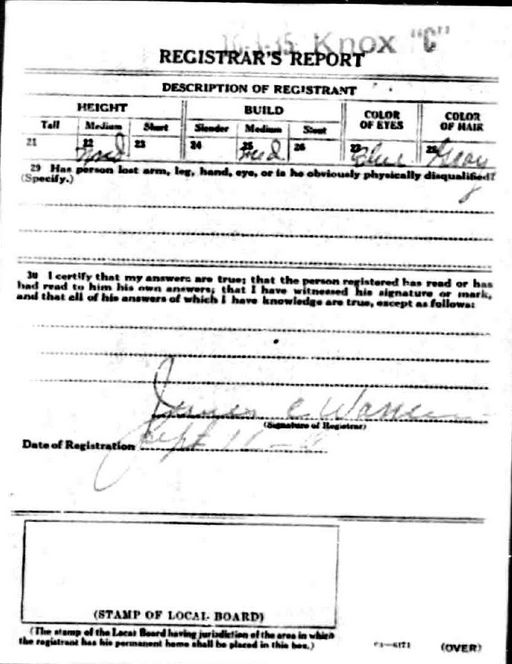 Knox "C"
REGISTRAR'S REPORT
DESCRIPTION OF REGISTRANT
HEIGHT BUILD COLOR OF EYES COLOR OF HAIR
Tall Medium Short Slender Medium Stout
21 22 Med 23 24 25 Med 26 27 Blue 28 Gray
29 Has person lost arm, leg, hand, eye, or is he obviously physically disqualified?
(Specify.)
30 I certify that my answers are true; that the person registered has read or has
had read to him his own answers; that I have witnessed his signature or mark,
and that all of his answers of which I have knowledge are true, except as follows:
C
(Signature of Registrar)
Date of Registration Sept
(STAMP OF LOCAL BOARD)
(The stamp of the Local Board having jurisdiction of the area in which
the registrant has his permanent home shall be placed in this box.)
(OVER)